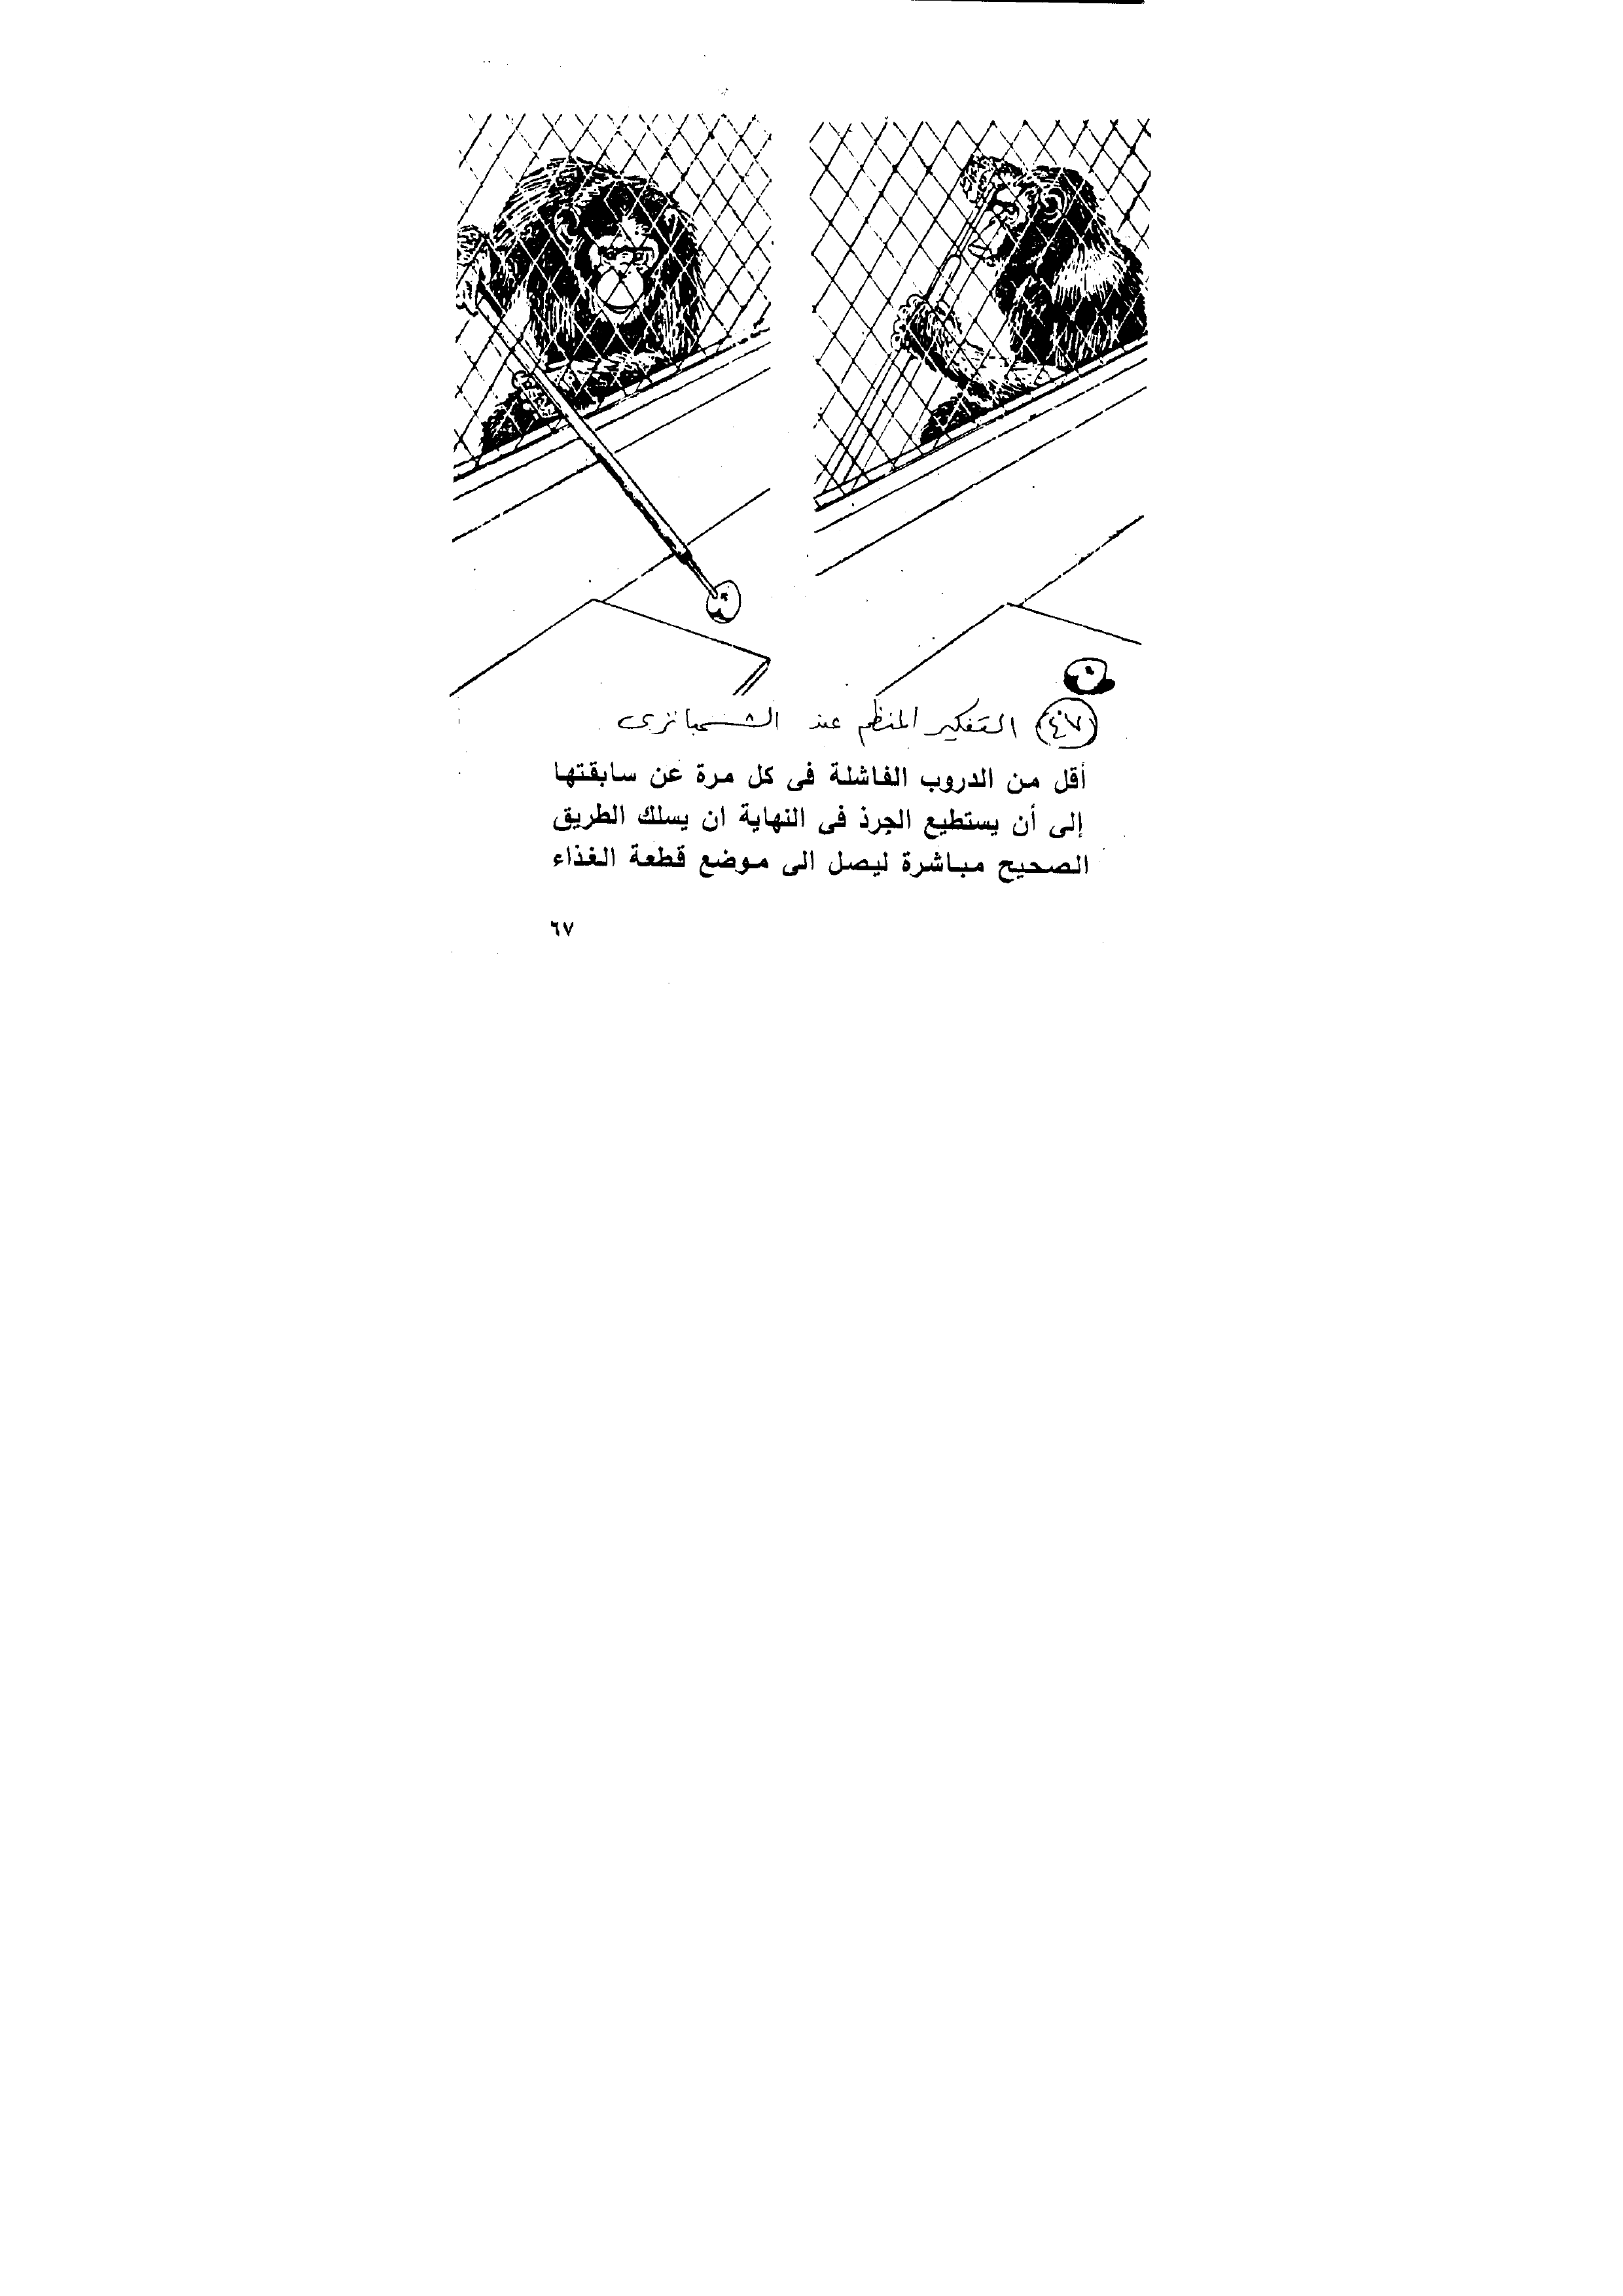 (٤٧) التفكير المنظم عند الشمبانزى
أقل من الدروب الفاشلة فى كل مرة عن سابقتها
إلى أن يستطيع الجرذ فى النهاية ان يسلك الطريق
الصحيح مباشرة ليصل الى موضع قطعة الغذاء
٦٧